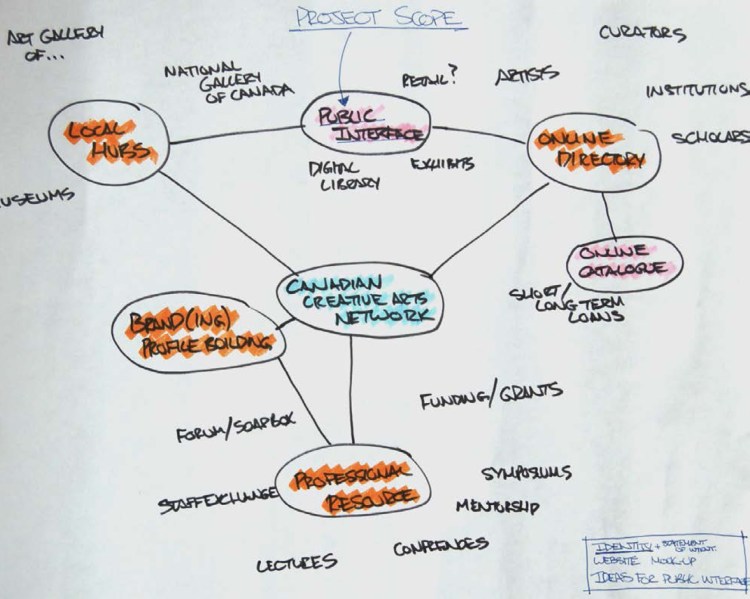 PROJECT SCOPE
ART GALLERY
OF...
CURATORS
NATIONAL
GALLERY
OF CANADA
RETAIL?
ARTISTS
INSTITUTIONS
LOCAL
HUBS
PUBLIC
INTERFACE
ONLINE
DIRECTORY
SCHOLARS
DIGITAL
LIBRARY
EXHIBITS
USEUMS
ONLINE
CATALOGUE
SHORT/
LONG TERM
LOANS
CANADIAN
CREATIVE ARTS
NETWORK
BRAND(ING)
PROFILE BUILDING
FUNDING/GRANTS
FORUM/SOAPBOX
PROFESSIONAL
RESOURCE
SYMPOSIUMS
STAFF EXCHANGE
MENTORSHIP
LECTURES
CONFRENCES
IDENTITY + STATEMENT
OF INTENT.
WEBSITE MOCK-UP
IDEAS FOR PUBLIC INTERFACE